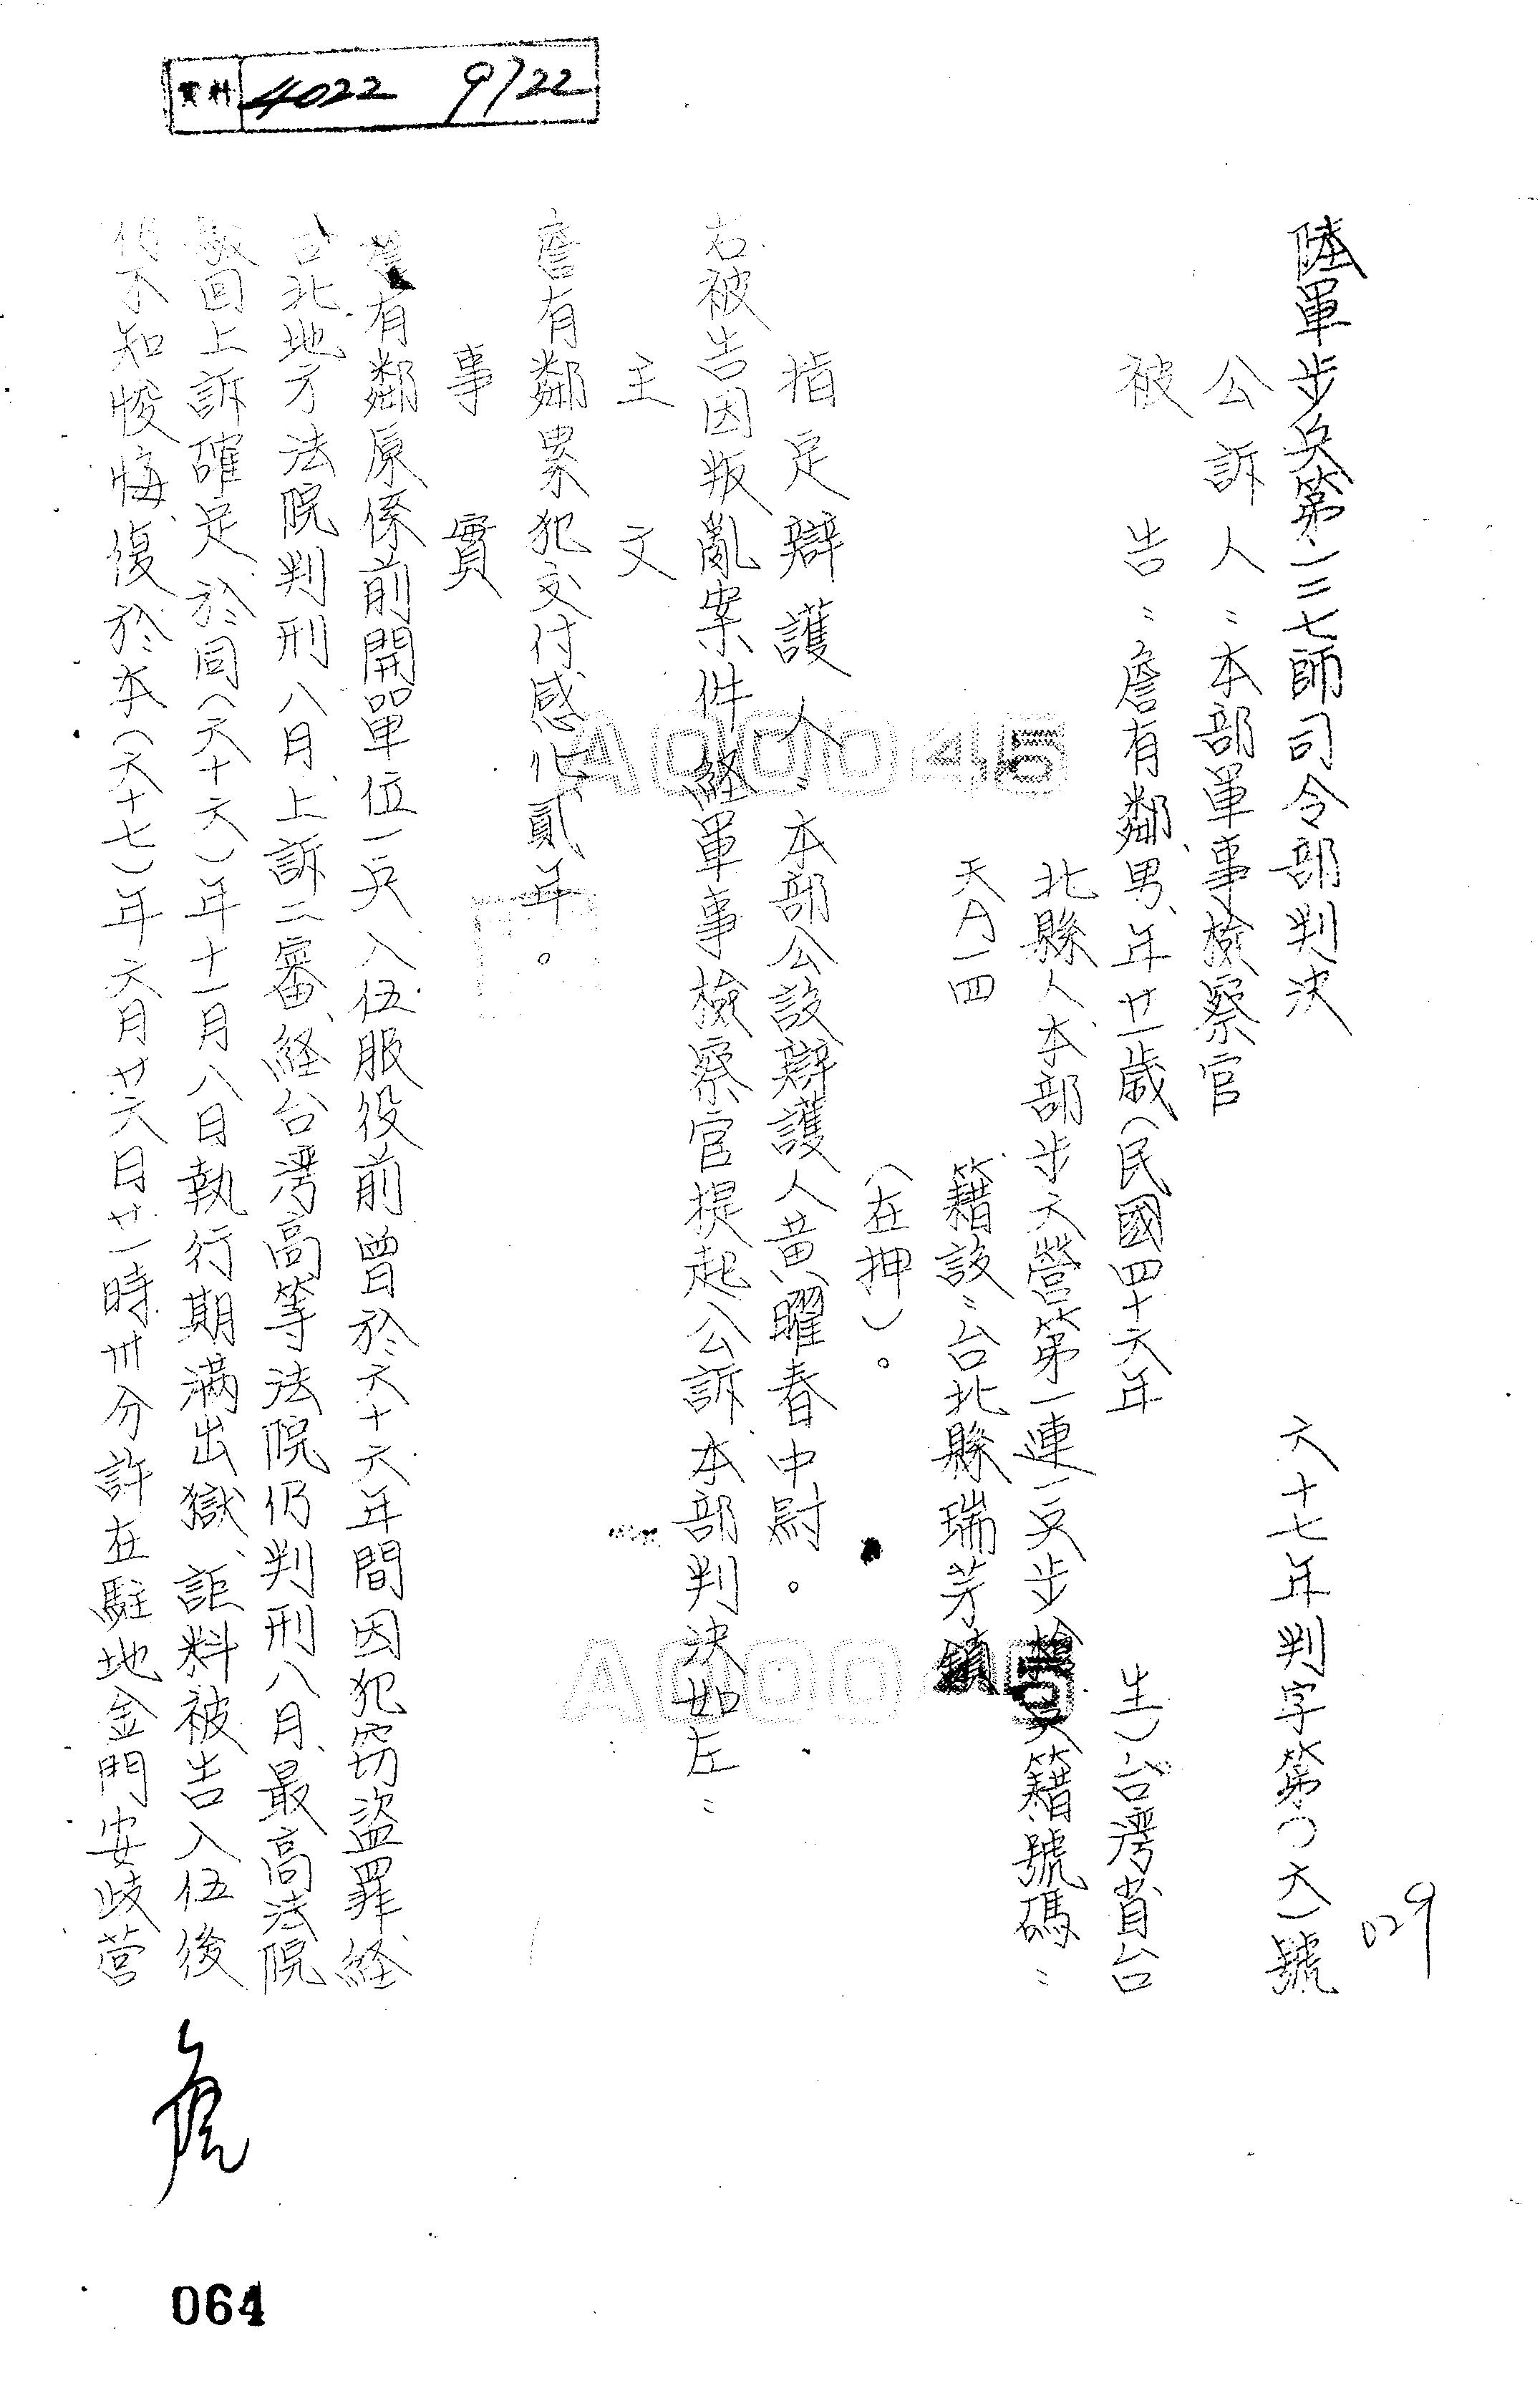 資料 4022 9722
029
陸軍步兵第一二七師司令部判決
六十七年判字第〇六號
公訴人：本部軍事檢察官
被告：詹有鄰、男、年廿一歲（民國四十六年
生）台灣省台
北縣人、本部步六營第一連一兵步槍兵籍號碼：
天A一四
籍設：台北縣瑞芳鎮
（在押）。
指定辯護人：本部公設辯護人黃曜春中尉。
右被告因叛亂案件、經軍事檢察官提起公訴本部判決如左：
主文
詹有鄰累犯交付感化貳年。
事實
詹有鄰原係前開單位一兵、入伍服役前曾於六十六年間因犯竊盜罪經
台北地方法院判刑八月、上訴二審、経台灣高等法院仍判刑八月、最高法院
駁回上訴確定、於同（六十六）年十一月八日執行期滿出獄、詎料被告入伍後
仍不知悛悔、復於本（六十七）年六月廿六日廿一時卅分許在駐地金門安歧營
A00045
A00045
064